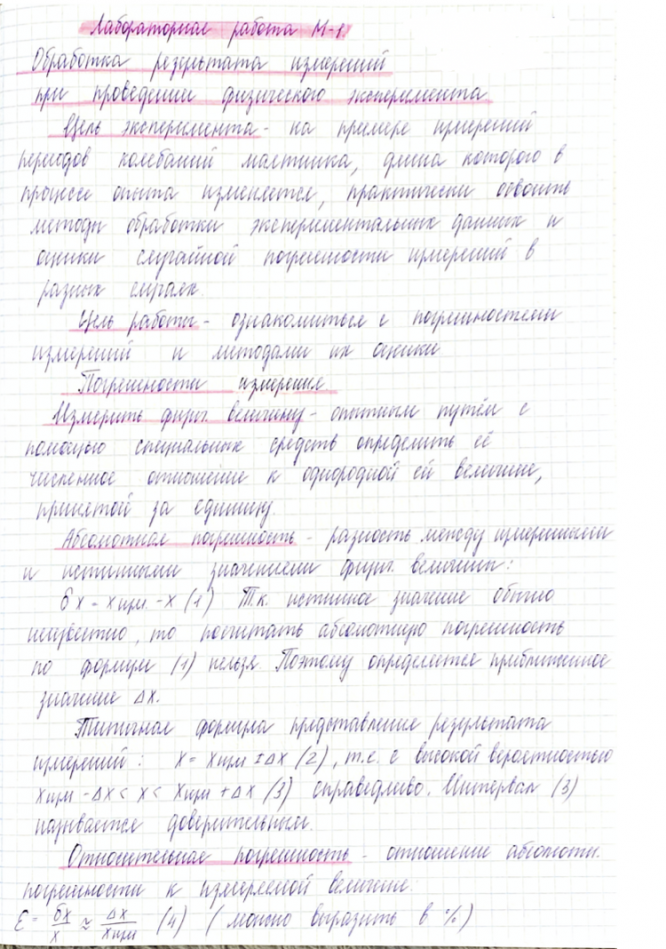 Лабораторная работа М-1
Обработка результата измерений
при проведении физического эксперимента.
Цель эксперимента - на примере измерений
периодов колебаний маятника, длина которого в
процессе опыта изменяется, практически освоить
методы обработки экспериментальных данных и
оценки случайной погрешности измерений в
разных случаях.
Цель работы - ознакомиться с погрешностями
измерений и методами их оценки
Погрешности измерения
Измерить физич. величину - опытным путём с
помощью специальных средств определить её
численное отношение к однородной ей величине,
принятой за единицу.
Абсолютная погрешность - разность между измеренным
и истинными значениями физич. величины:
δx = xизм. - x (1) Т.к. истинное значение обычно
неизвестно, то посчитать абсолютную погрешность
по формуле (1) нельзя. Поэтому определяется приближенное
значение Δx.
Типичная формула представления результата
измерений: x = xизм ± Δx (2), т.е. с высокой вероятностью
xизм - Δx < x < xизм + Δx (3) справедливо. Интервал (3)
называется доверительным.
Относительная погрешность - отношение абсолютн.
погрешности к измеряемой величине.
ε = δx/x ≈ Δx/xизм (4) (можно выразить в %)